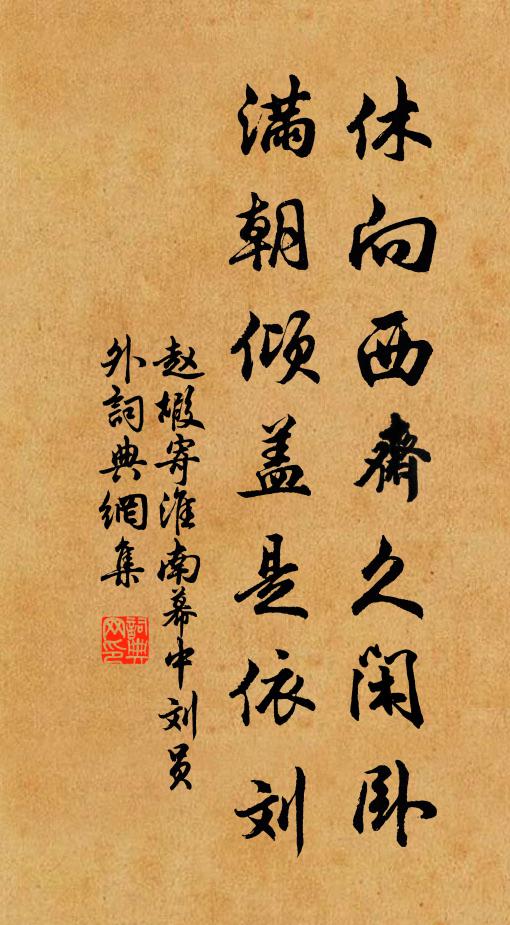 休向西齋久闲卧
满朝倾盖是依刘
赵嘏寄淮南幕中刘员
外詞典網集
詞典
网印